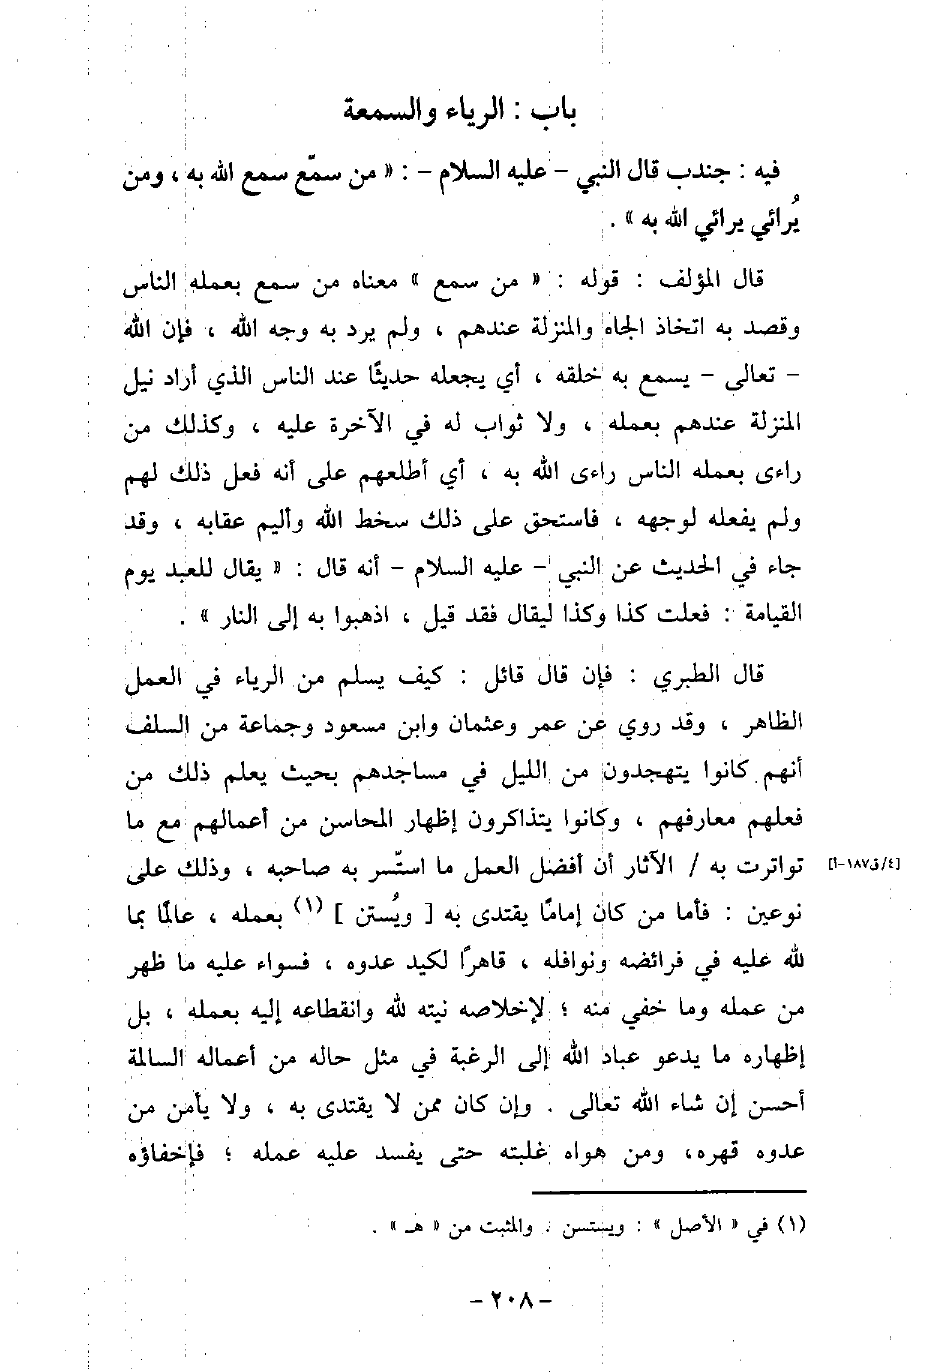 باب : الرياء والسمعة
فيه : جندب قال النبي – عليه السلام – : « من سمّع سمع الله به ، ومن
يُرائي يرائي الله به » .
قال المؤلف : قوله : « من سمع » معناه من سمع بعمله الناس
وقصد به اتخاذ الجاه والمنزلة عندهم ، ولم يرد به وجه الله ، فإن الله
– تعالى – يسمع به خلقه ، أي يجعله حديثًا عند الناس الذي أراد نيل
المنزلة عندهم بعمله ، ولا ثواب له في الآخرة عليه ، وكذلك من
راءى بعمله الناس راءى الله به ، أي أطلعهم على أنه فعل ذلك لهم
ولم يفعله لوجهه ، فاستحق على ذلك سخط الله وأليم عقابه ، وقد
جاء في الحديث عن النبي – عليه السلام – أنه قال : « يقال للعبد يوم
القيامة : فعلت كذا وكذا ليقال فقد قيل ، اذهبوا به إلى النار » .
قال الطبري : فإن قال قائل : كيف يسلم من الرياء في العمل
الظاهر ، وقد روي عن عمر وعثمان وابن مسعود وجماعة من السلف
أنهم كانوا يتهجدون من الليل في مساجدهم بحيث يعلم ذلك من
فعلهم معارفهم ، وكانوا يتذاكرون إظهار المحاسن من أعمالهم مع ما
تواترت به / الآثار أن أفضل العمل ما استّسر به صاحبه ، وذلك على [٤/ق١٨٧-أ]
نوعين : فأما من كان إمامًا يقتدى به [ ويُستن ] (١) بعمله ، عالمًا بما
لله عليه في فرائضه ونوافله ، قاهرًا لكيد عدوه ، فسواء عليه ما ظهر
من عمله وما خفي منه ؛ لإخلاصه نيته لله وانقطاعه إليه بعمله ، بل
إظهاره ما يدعو عباد الله إلى الرغبة في مثل حاله من أعماله السالمة
أحسن إن شاء الله تعالى . وإن كان ممن لا يقتدى به ، ولا يأمن من
عدوه قهره، ومن هواه غلبته حتى يفسد عليه عمله ؛ فإخفاؤه
(١) في « الأصل » : ويستسن . والمثبت من « هـ » .
– ٢٠٨ –